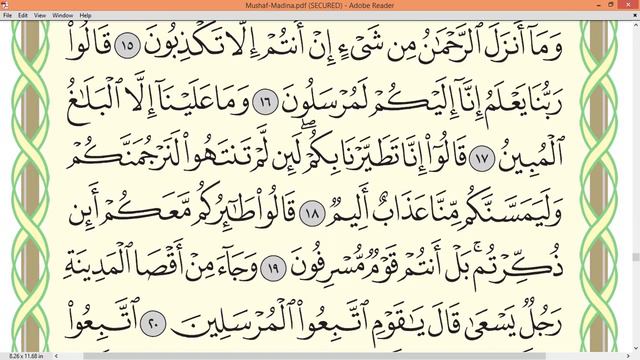 Mushaf-Madina.pdf (SECURED) - Adobe Reader
File Edit View Window Help
وَمَآ أَنزَلَ ٱلرَّحْمَٰنُ مِن شَىْءٍ إِنْ أَنتُمْ إِلَّا تَكْذِبُونَ ١٥ قَالُوا۟
رَبُّنَا يَعْلَمُ إِنَّآ إِلَيْكُمْ لَمُرْسَلُونَ ١٦ وَمَا عَلَيْنَآ إِلَّا ٱلْبَلَٰغُ
ٱلْمُبِينُ ١٧ قَالُوٓا۟ إِنَّا تَطَيَّرْنَا بِكُمْ ۖ لَئِن لَّمْ تَنتَهُوا۟ لَنَرْجُمَنَّكُمْ
وَلَيَمَسَّنَّكُم مِّنَّا عَذَابٌ أَلِيمٌ ١٨ قَالُوا۟ طَٰٓئِرُكُم مَّعَكُمْ ۚ أَئِن
ذُكِّرْتُم ۚ بَلْ أَنتُمْ قَوْمٌ مُّسْرِفُونَ ١٩ وَجَآءَ مِنْ أَقْصَا ٱلْمَدِينَةِ
رَجُلٌ يَسْعَىٰ قَالَ يَٰقَوْمِ ٱتَّبِعُوا۟ ٱلْمُرْسَلِينَ ٢٠ ٱتَّبِعُوا۟
8.26 x 11.68 in